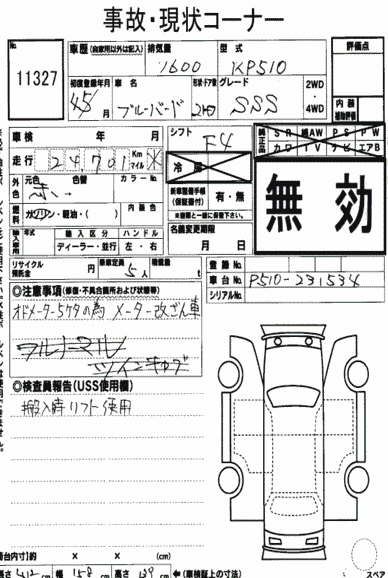 事故・現状コーナー
No.
11327
車歴(自家用以外は記入) 排気量 型式
1600 KP510
評価点
初度登録年月 車名 形状・ドア数 グレード
45/ ブルーバード 2HD SSS
2WD・4WD
内装
補助評価
車検 年 月
シフト
F4
走行 24,701 Km マイル
冷房
純正品 SR 純AW PS PW
カワ TV ナビ エアB
外色 元色 色替 カラーNo
赤
燃料 ガソリン・軽油・( ) 内装色
新車整備手帳(保証書付) 有・無
※空欄と一緒に保管下さい。
名義変更期限
月 日
無効
輸入車用 年式 輸入区分 ハンドル
ディーラー・並行 左・右
リサイクル預託金 円 乗車定員 5人 積載量 t
登録No.
車台No. P510-231534
シリアルNo.
◎注意事項(修復・不具合箇所および状態等)
オドメーター5ケタの為 メーター改ざん車
フルノーマル
ツインキャブ
◎検査員報告(USS使用欄)
搬入時リフト使用
荷台内寸)約 × × (cm)
長さ 412 cm 幅 158 cm 高さ 139 cm ←(車検証上の寸法)
スペア